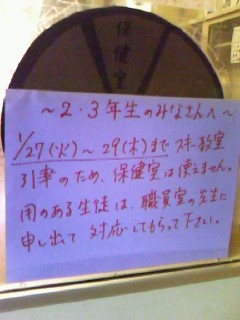 保健室
～2・3年生のみなさんへ～
1/27(火)～29(木)まで スキー教室
引率のため、保健室は使えません。
用のある生徒は、職員室の先生に
申し出て 対応してもらって下さい。